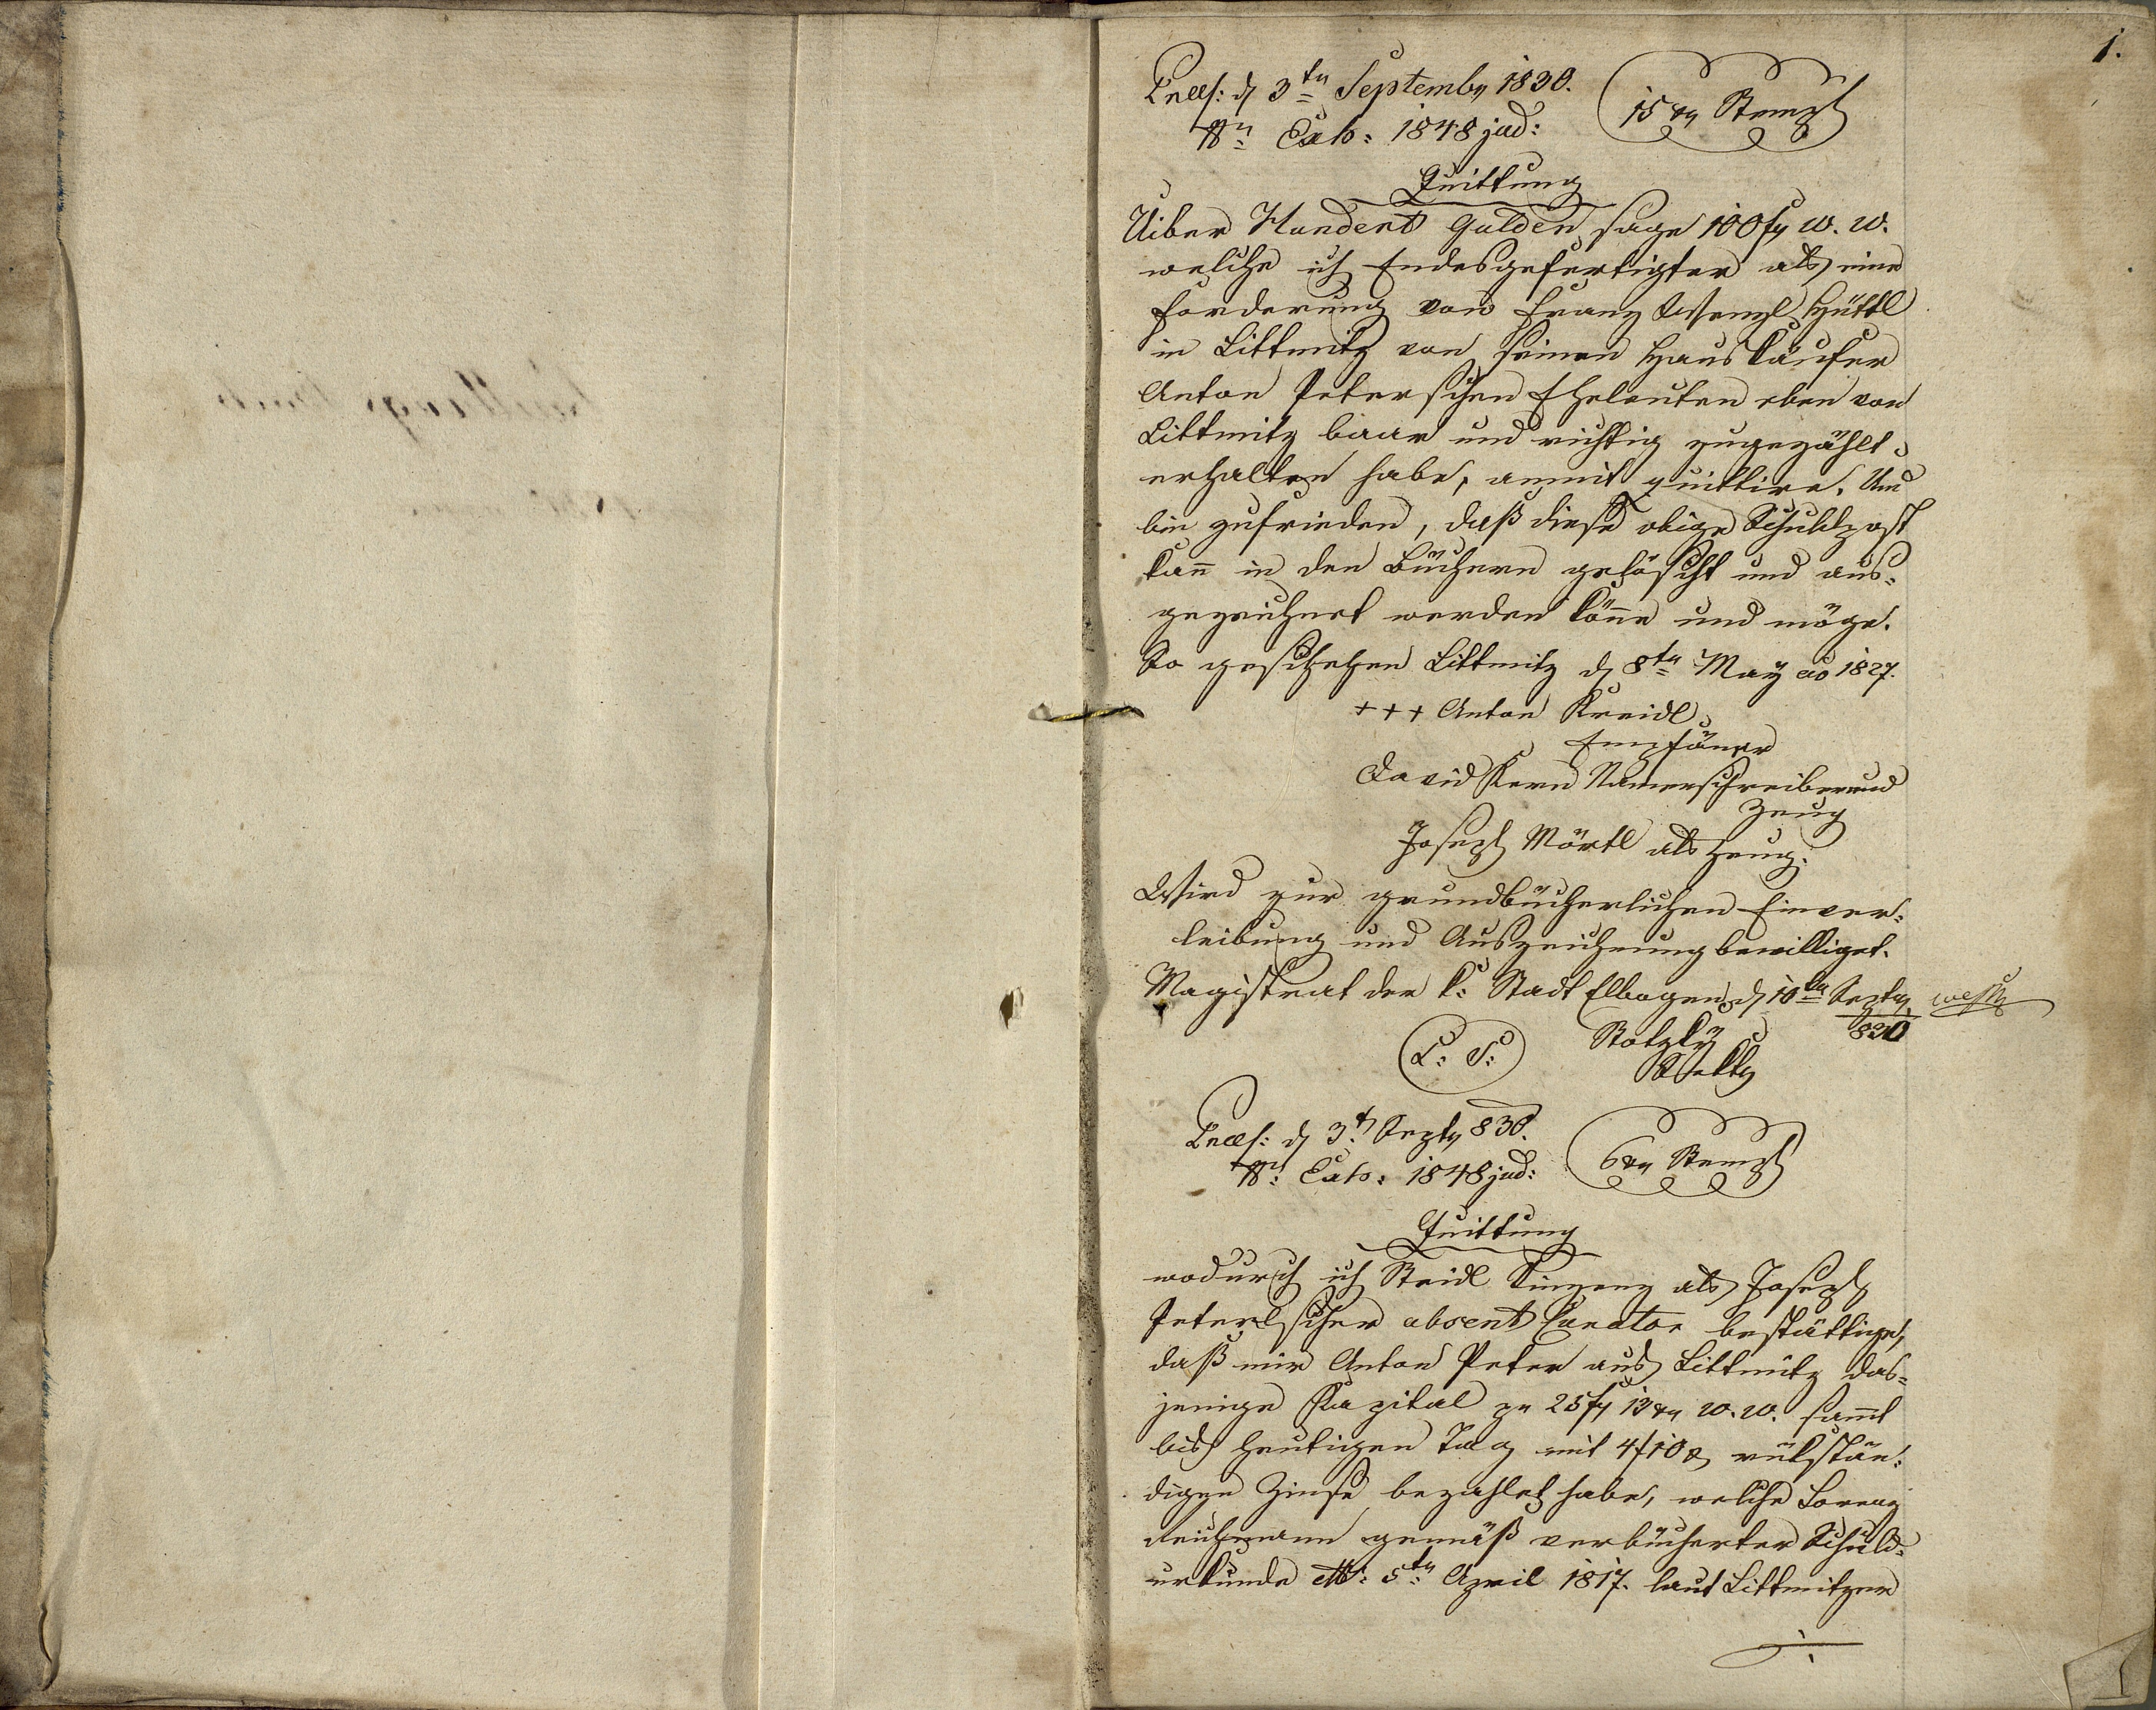 1.
Præs: d 3ten Septembr 1830.
15 xr Stempl
Nr: Exh: 1848 jud:
Quittung
Uiber Hundert Gulden sage 100 fr W. W.
welche ich Endesgefertigter als eine
Forderung von Franz Wenzl Hüttl
in Littmitz von seinen Haus Käufer
Anton Peterschen Eheleuten eben von
Littmitz baar und richtig zugezählt
erhalten habe, anmit quittire. Und
bin zufrieden, daß diese obige Schuldpost
kann in den Büchern gelöscht und aus-
gezeichnet werden könne und möge.
So geschehen Littmitz d 8ten May ao 1827.
+++ Anton Kreidl
Empfänger
David Kern Namenschreiber und
Zeug
Joseph Mörtl als Zeug.
Wird zur grundbücherlichen Einver-
leibung und Auszeichnung bewilliget.
Magistrat der k: Stadt Elbogen d 10ten Septr
830
L: S:
Præs: d 3t Septr 830.
6 xr Stempl
Nr: Exh: 1848 jud:
Quittung
wodurch ich Steidl als Joseph
Peterlscher absent Curator bestättige,
daß mir Anton Peter aus Littmitz das-
jenige Kapital zu 25 fr 13 xr W. W. sammt
bis heutigen Tag mit 4 f 10 x rükstän-
digen Zinse bezahlet habe, welche Lorenz
Reichmann gemäß verbücherter Schuld-
urkunde 5ten April 1817. laut Littmitzer